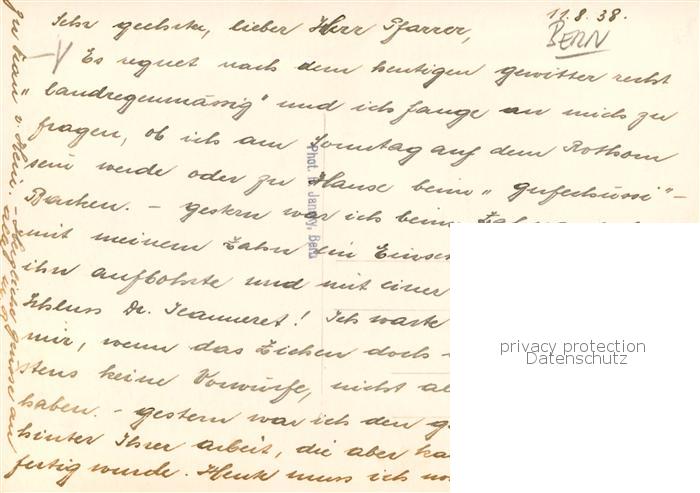 11.8.38.
BERN
Sehr geehrte, lieber Herr Pfarrer,
Es regnet nach dem heutigen gewitter recht
"landregenmässig" und ich fange an mich zu
fragen, ob ich am Sonntag auf dem Rothorn
sein werde oder zu Hause beim "
Backen. - gestern war ich beim
mit meinem Zahn ein
ihn aufbohrte und mit einer
Schluss Dr. Jeanneret! Ich warte
mir, wenn das Ziehen doch
stens keine Vorwürfe, nicht
haben. - gestern war ich den
hinter Ihrer arbeit, die aber
fertig wurde. Heute muss ich
Phot. H. Jandy, Bern
privacy protection
Datenschutz